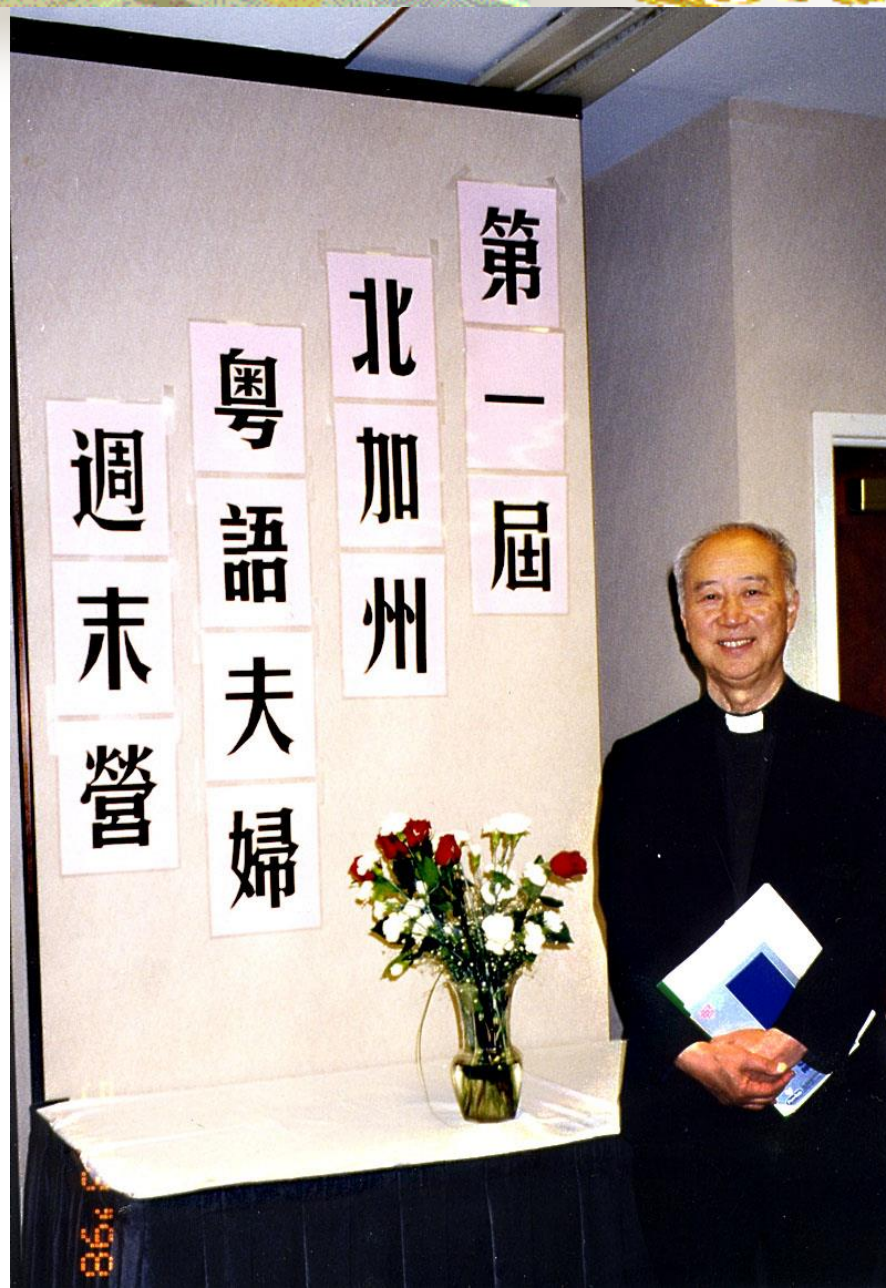 第一屆
北加州
粵語夫婦
週末營